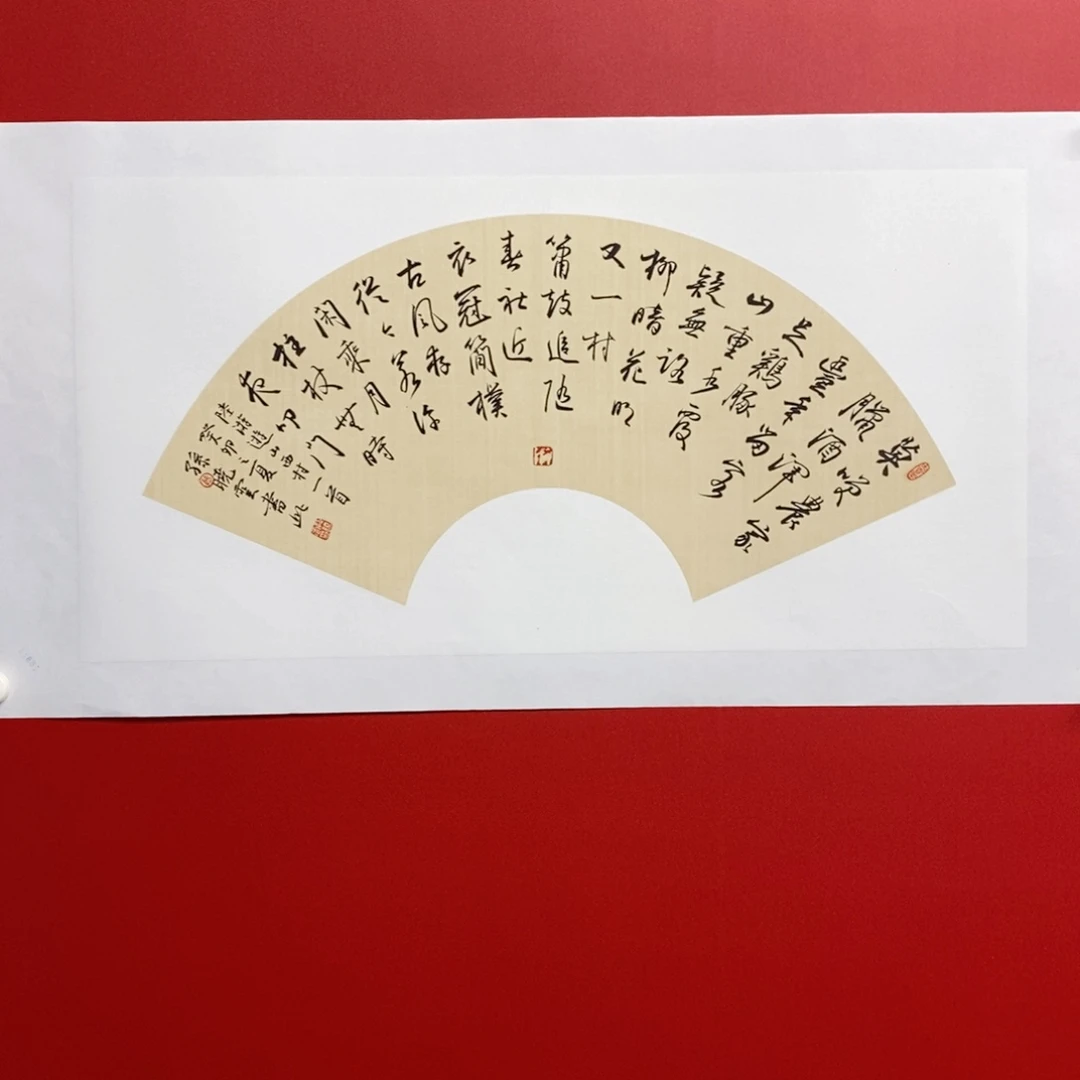 莫笑農家
臘酒渾
豐年留客
足鷄豚
山重水複
疑無路
柳暗花明
又一村
簫鼓追隨
春社近
衣冠簡樸
古風存
從今若許
閑乘月
拄杖無時
夜叩门
陸游遊山西村一首
癸卯之夏
孫曉雲書此